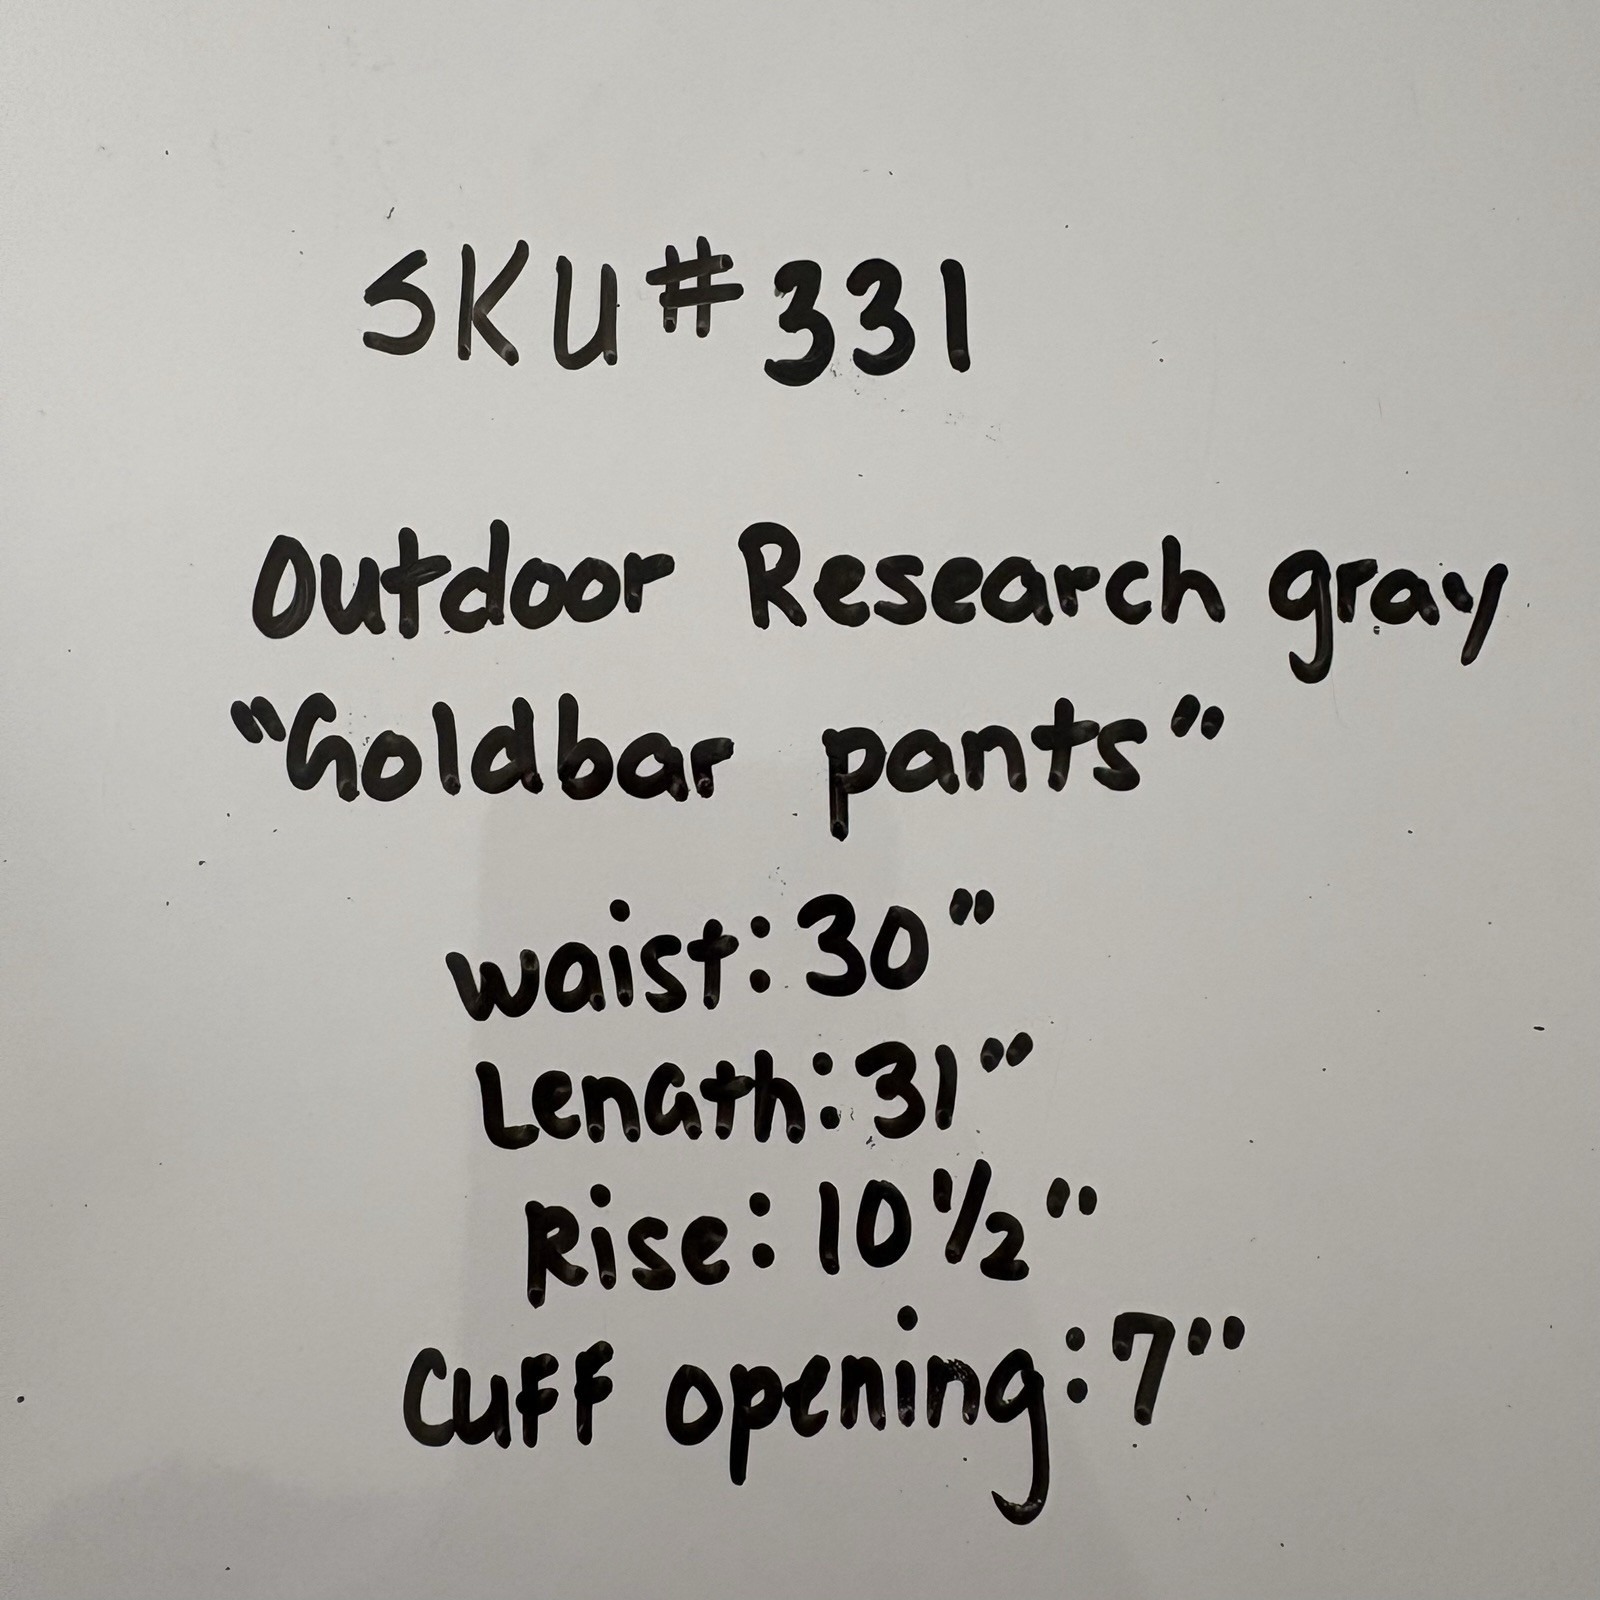 SKU#331
Outdoor Research gray
"Goldbar pants"
waist: 30"
Length: 31"
Rise: 10 1/2"
Cuff opening: 7"